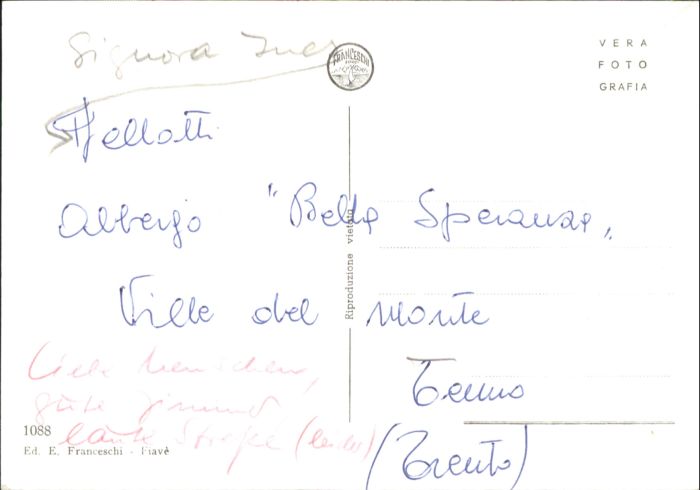 Signora Ines
FRANCESCHI
VERA
FOTO
GRAFIA
Albergo "Bella Speranza"
Ville del Monte
Tenno
(Trento)
Riproduzione vietata
Liebe Menschen,
gute
laute Straße (leider)
1088
Ed. E. Franceschi - Fiavè